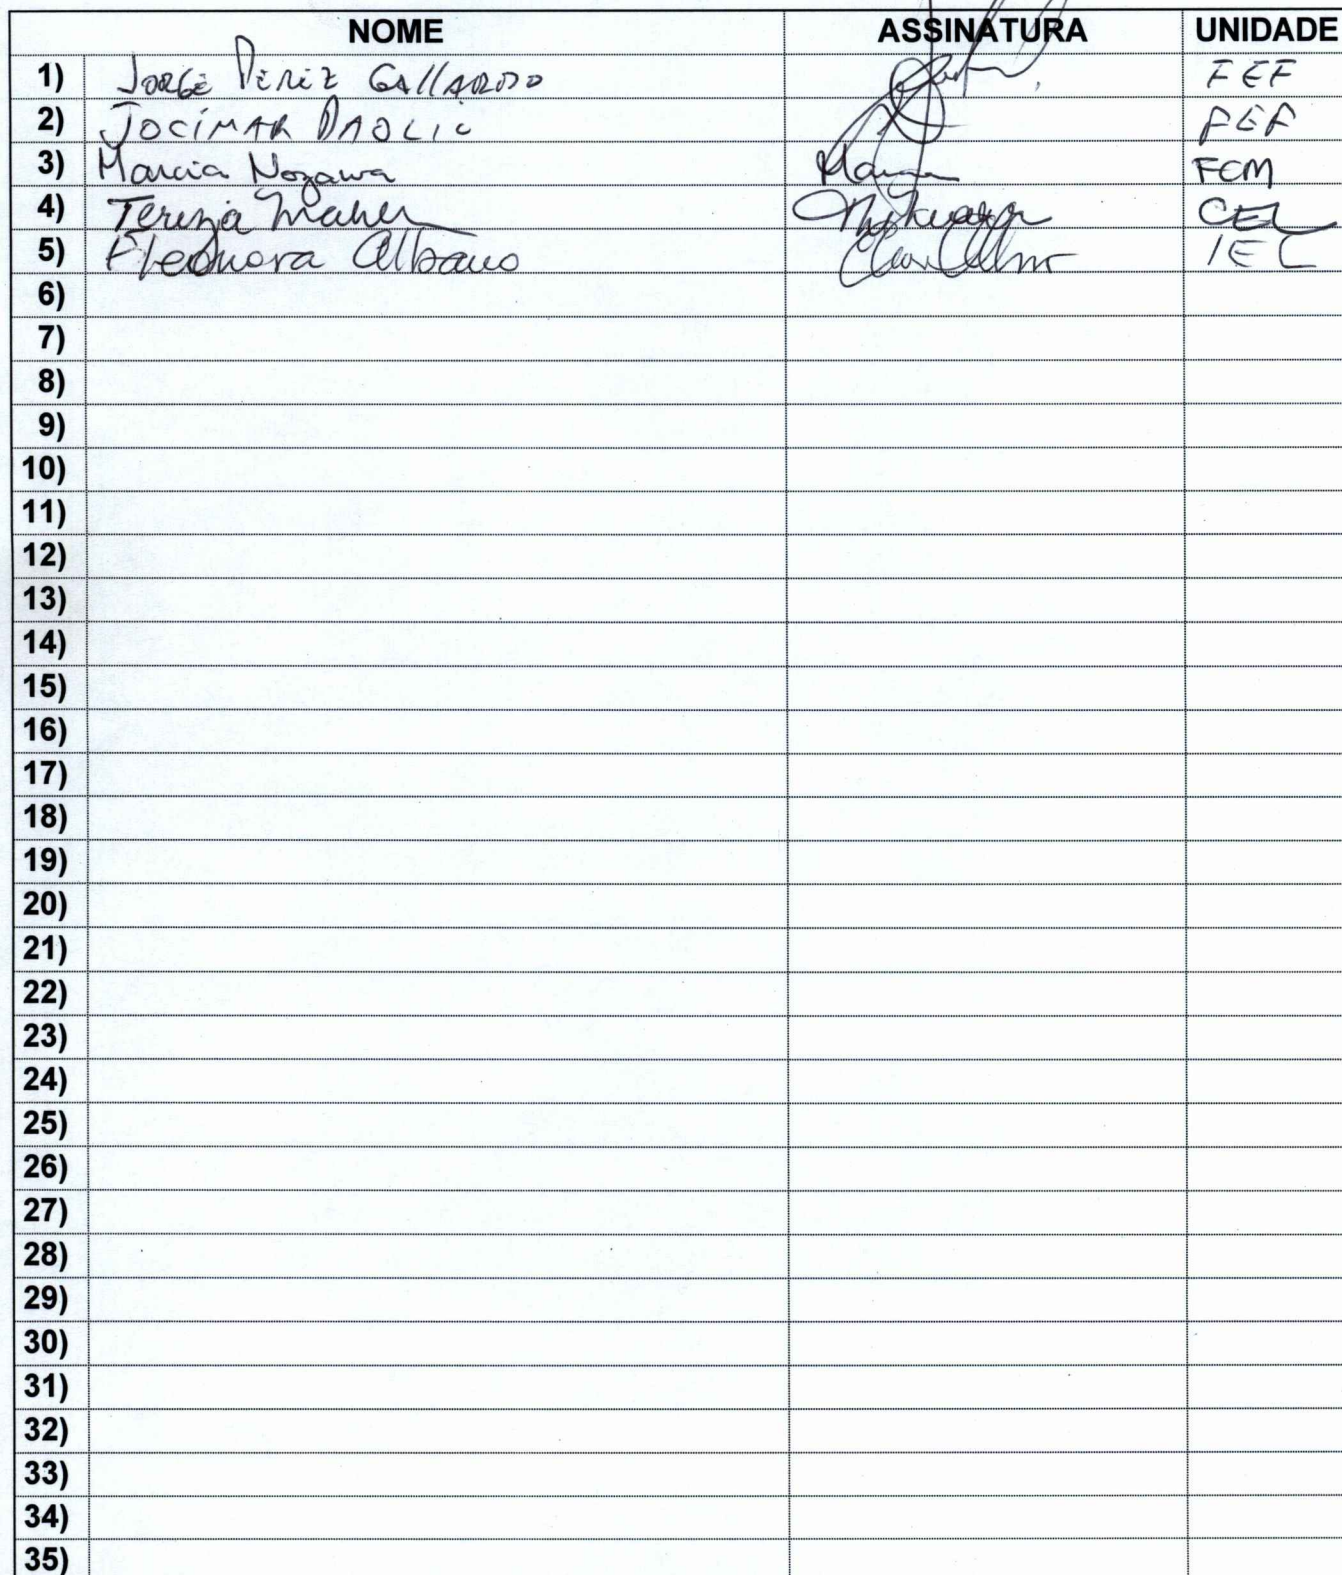 NOME ASSINATURA UNIDADE
1) JORGE PEREZ GALLARDO FEF
2) JOCIMAR DAOLIO FEF
3) Marcia Nozawa FCM
4) Terezja Maher CEL
5) Eleonora Albano IEL
6)
7)
8)
9)
10)
11)
12)
13)
14)
15)
16)
17)
18)
19)
20)
21)
22)
23)
24)
25)
26)
27)
28)
29)
30)
31)
32)
33)
34)
35)